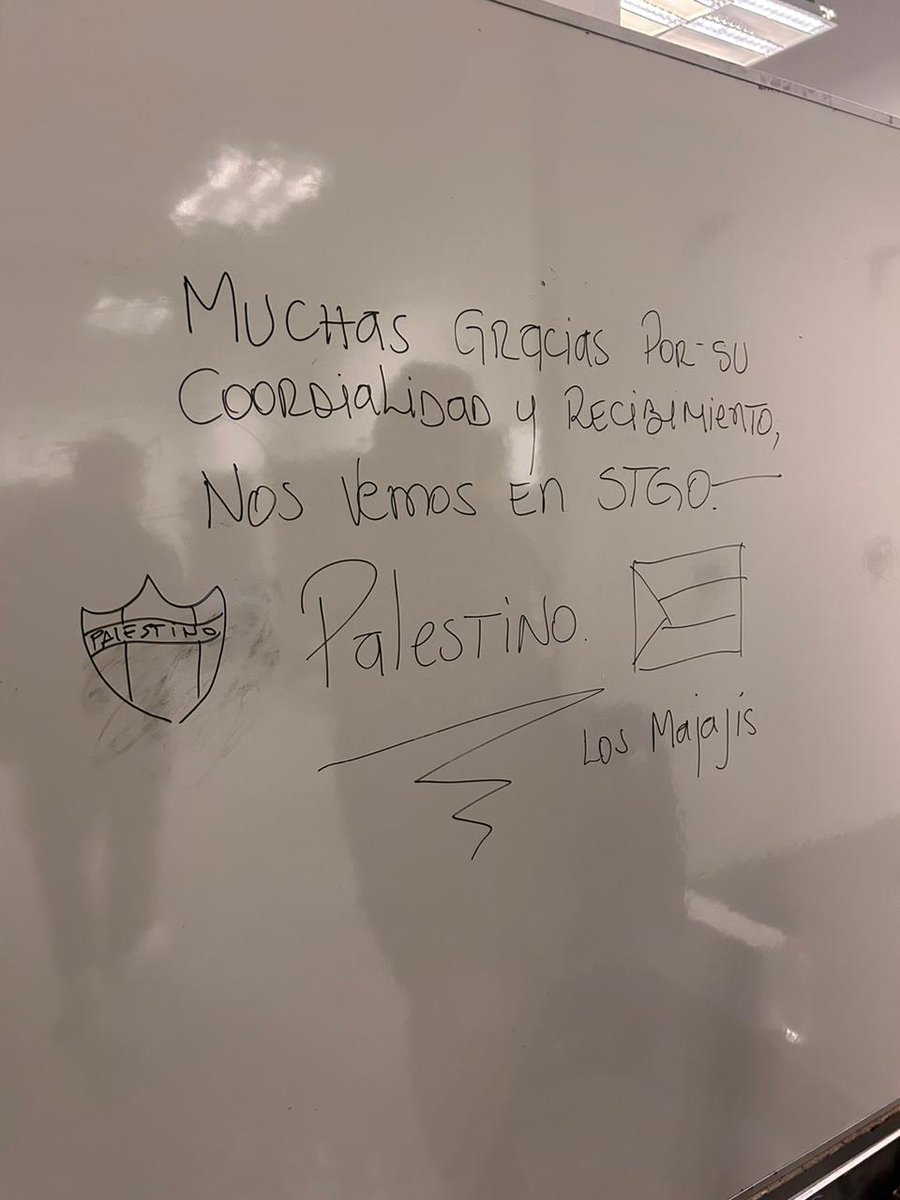 MUCHAS GRACIAS POR SU
COORDIALIDAD Y RECIBIMIENTO,
NOS VEMOS EN STGO.
PALESTINO
PALESTINO.
LOS MAJAJÍS